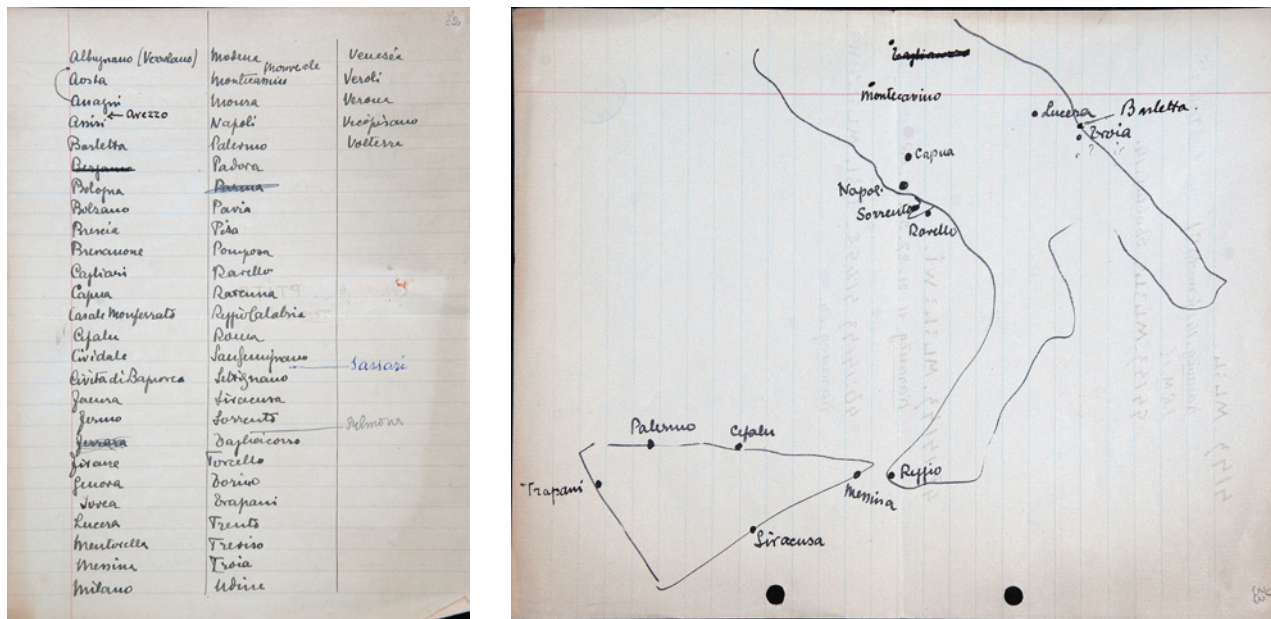 33
Albugnano (Vezzolano)
Aosta
Anagni
Assisi ← Arezzo
Barletta
Bergamo
Bologna
Bolzano
Brescia
Bressanone
Cagliari
Capua
Casale Monferrato
Cefalu
Cividale
Civita di Bagnorea
Faenza
Fermo
Ferrara
Firenze
Genova
Ivrea
Lucera
Mentorella
Messina
Milano
Modena
Monreale
Montecassino
Monza
Napoli
Palermo
Padova
Parma
Pavia
Pisa
Pomposa
Ravello
Ravenna
Reggio Calabria
Roma
San Gimignano
Settignano
Siracusa
Sorrento
Tagliacozzo
Torcello
Torino
Trapani
Trento
Treviso
Troia
Udine
Venezia
Veroli
Verona
Vicopisano
Volterra
Sassari
Sulmona
Tagliacozzo
Montecassino
Lucera
Barletta
Troia
Capua
Napoli
Sorrento
Ravello
Palermo
Cefalu
Trapani
Messina
Reggio
Siracusa
33